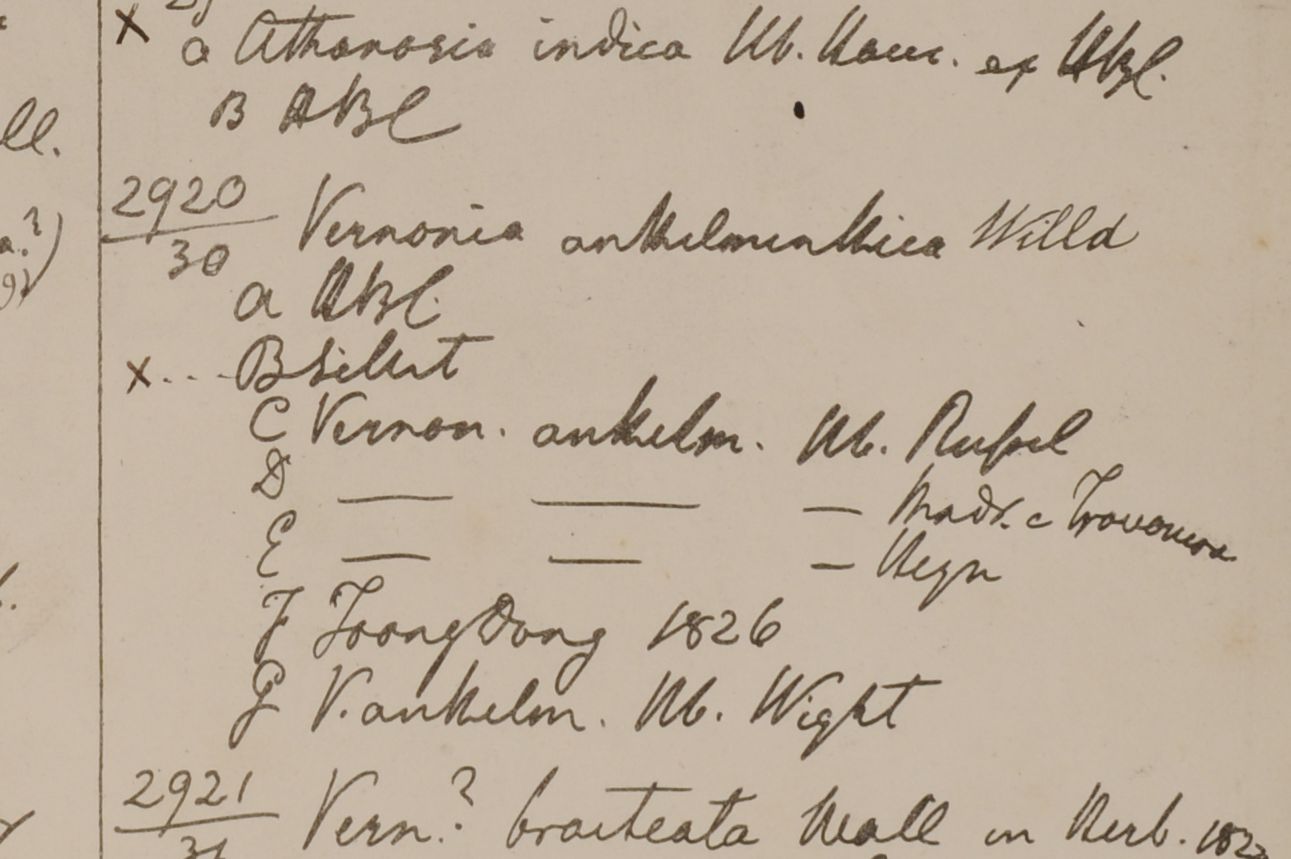 a Athanasia indica Hb. Ham. ex HBC.
B HBC
2920 Vernonia anthelminthica Willd
30
a HBC.
x... B Sillet
C Vernon. anthelm. Hb. Russel
D — — — Madr. c Travancora
E — — — Heyn
F Toong Dong 1826
G V. anthelm. Hb. Wight
2921 Vern.? bracteata Wall in Herb. 182
31